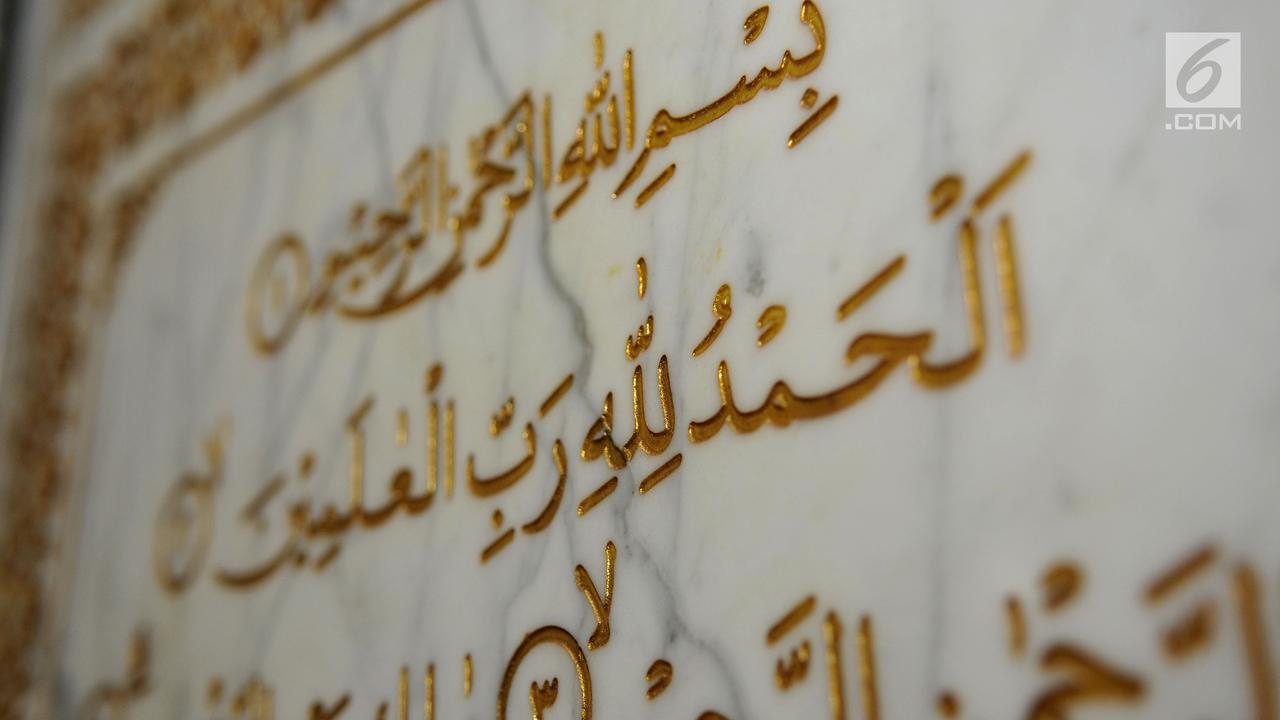 6
.COM
بِسْمِ اللّٰهِ الرَّحْمٰنِ الرَّحِيْمِ ١
اَلْحَمْدُ لِلّٰهِ رَبِّ الْعٰلَمِيْنَ لا
اَلرَّحْمٰنِ لا ٣